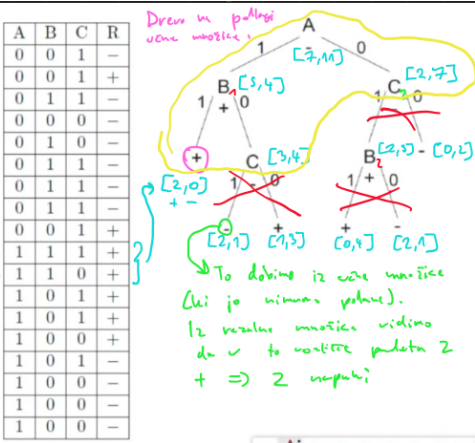 A B C R
0 0 1 −
0 0 1 +
0 1 1 −
0 0 0 −
0 1 0 −
0 1 1 −
0 1 1 −
0 0 1 +
1 1 1 +
1 1 0 +
1 0 1 +
1 0 1 +
1 0 0 +
1 0 1 −
1 0 0 −
1 0 0 −
1 0 0 −
Drevo na podlagi
učne množice.
A
1 - 0
[7,11]
B1 [5,4] C2 [2,7]
1 + 0 1 0
+ C [3,4] B2 [2,5] - [0,2]
[2,0]
+ -
1 - 0 1 + 0
- + + -
[2,1] [1,3] [0,4] [2,1]
To dobimo iz učne množice
(ki jo nimamo podane).
Iz rezalne množice vidimo
da v to vozlišče padeta 2
+ => 2 napaki